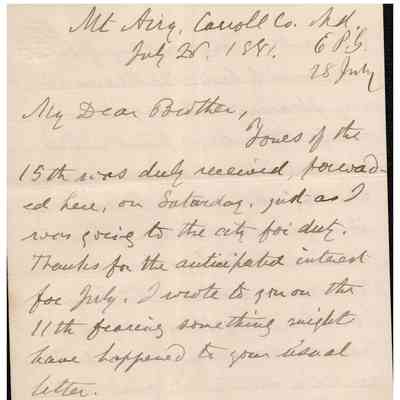 Mt Airy, Carroll Co. Md.
July 28. 1881.
E P G
28 July
My Dear Brother,
Yours of the
15th was duly received, forward-
ed here, on Saturday, just as I
was going to the city for duty.
Thanks for the anticipated interest
for July. I wrote to you on the
11th fearing something might
have happened to your usual
letter.